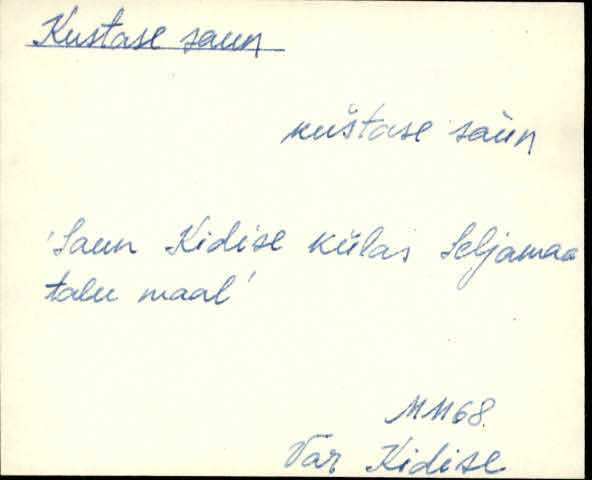 Kustase saun
kuštase sàun
'Saun Kidise külas Seljamaa
talu maal'
MM68.
Var Kidise